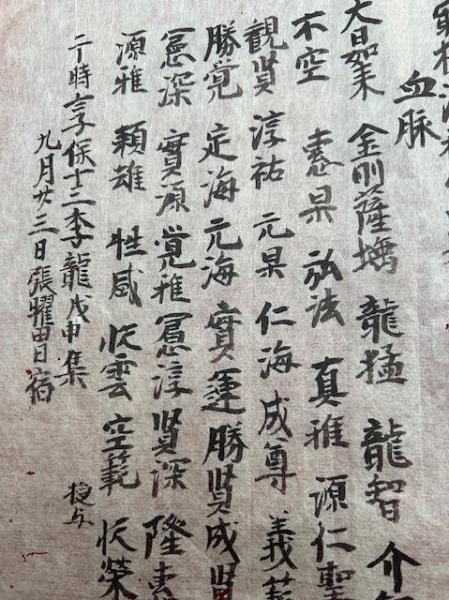 血脉
大日如来 金剛薩埵 龍猛 龍智
不空 恵果 弘法 真雅 源仁 聖
観賢 淳祐 元杲 仁海 成尊 義
勝覚 定海 元海 實運 勝賢 成賢
憲深 實深 覚雅 憲淳 賢深 隆
源雅 頼雄 性盛 快雲 空範 快榮
于時享保十三季龍戊申集 授与
九月廿三日張曜胃宿